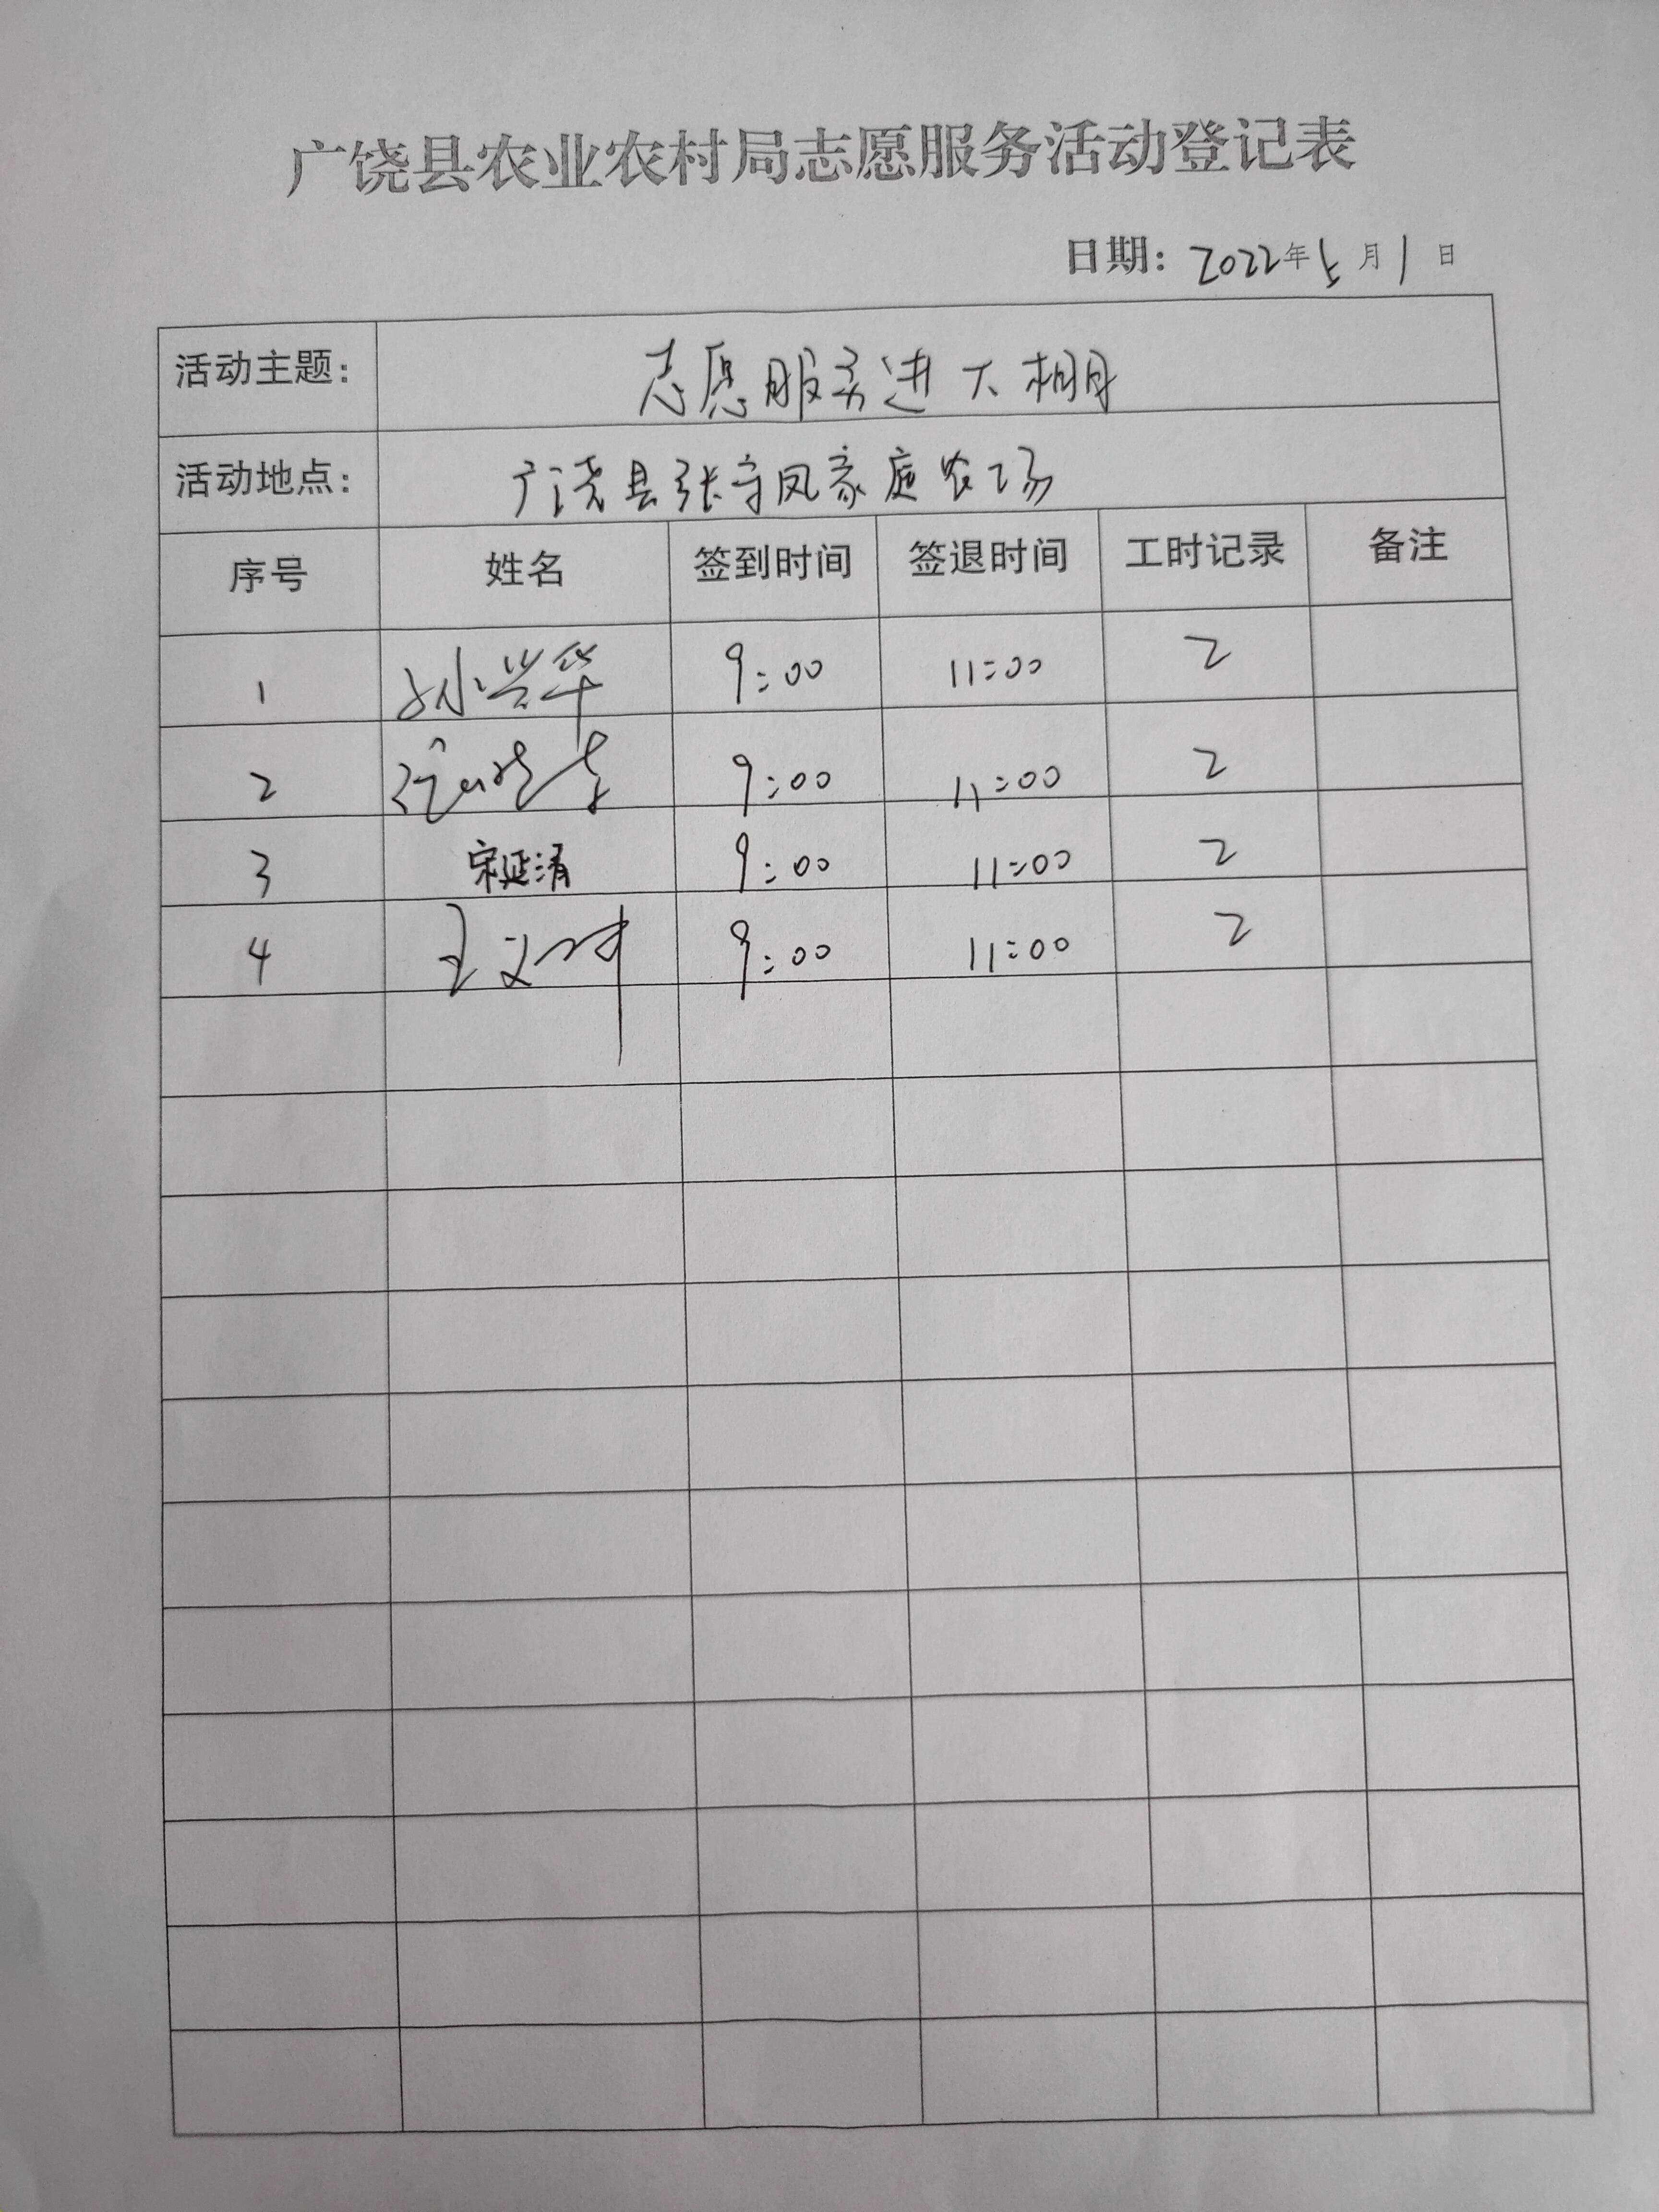 广饶县农业农村局志愿服务活动登记表
日期: 2022年5月1日
活动主题: 志愿服务进大棚
活动地点: 广饶县张守凤家庭农场
序号 姓名 签到时间 签退时间 工时记录 备注
1 孙兴华 9:00 11:00 2
2 9:00 11:00 2
3 宋延清 9:00 11:00 2
4 王文 9:00 11:00 2